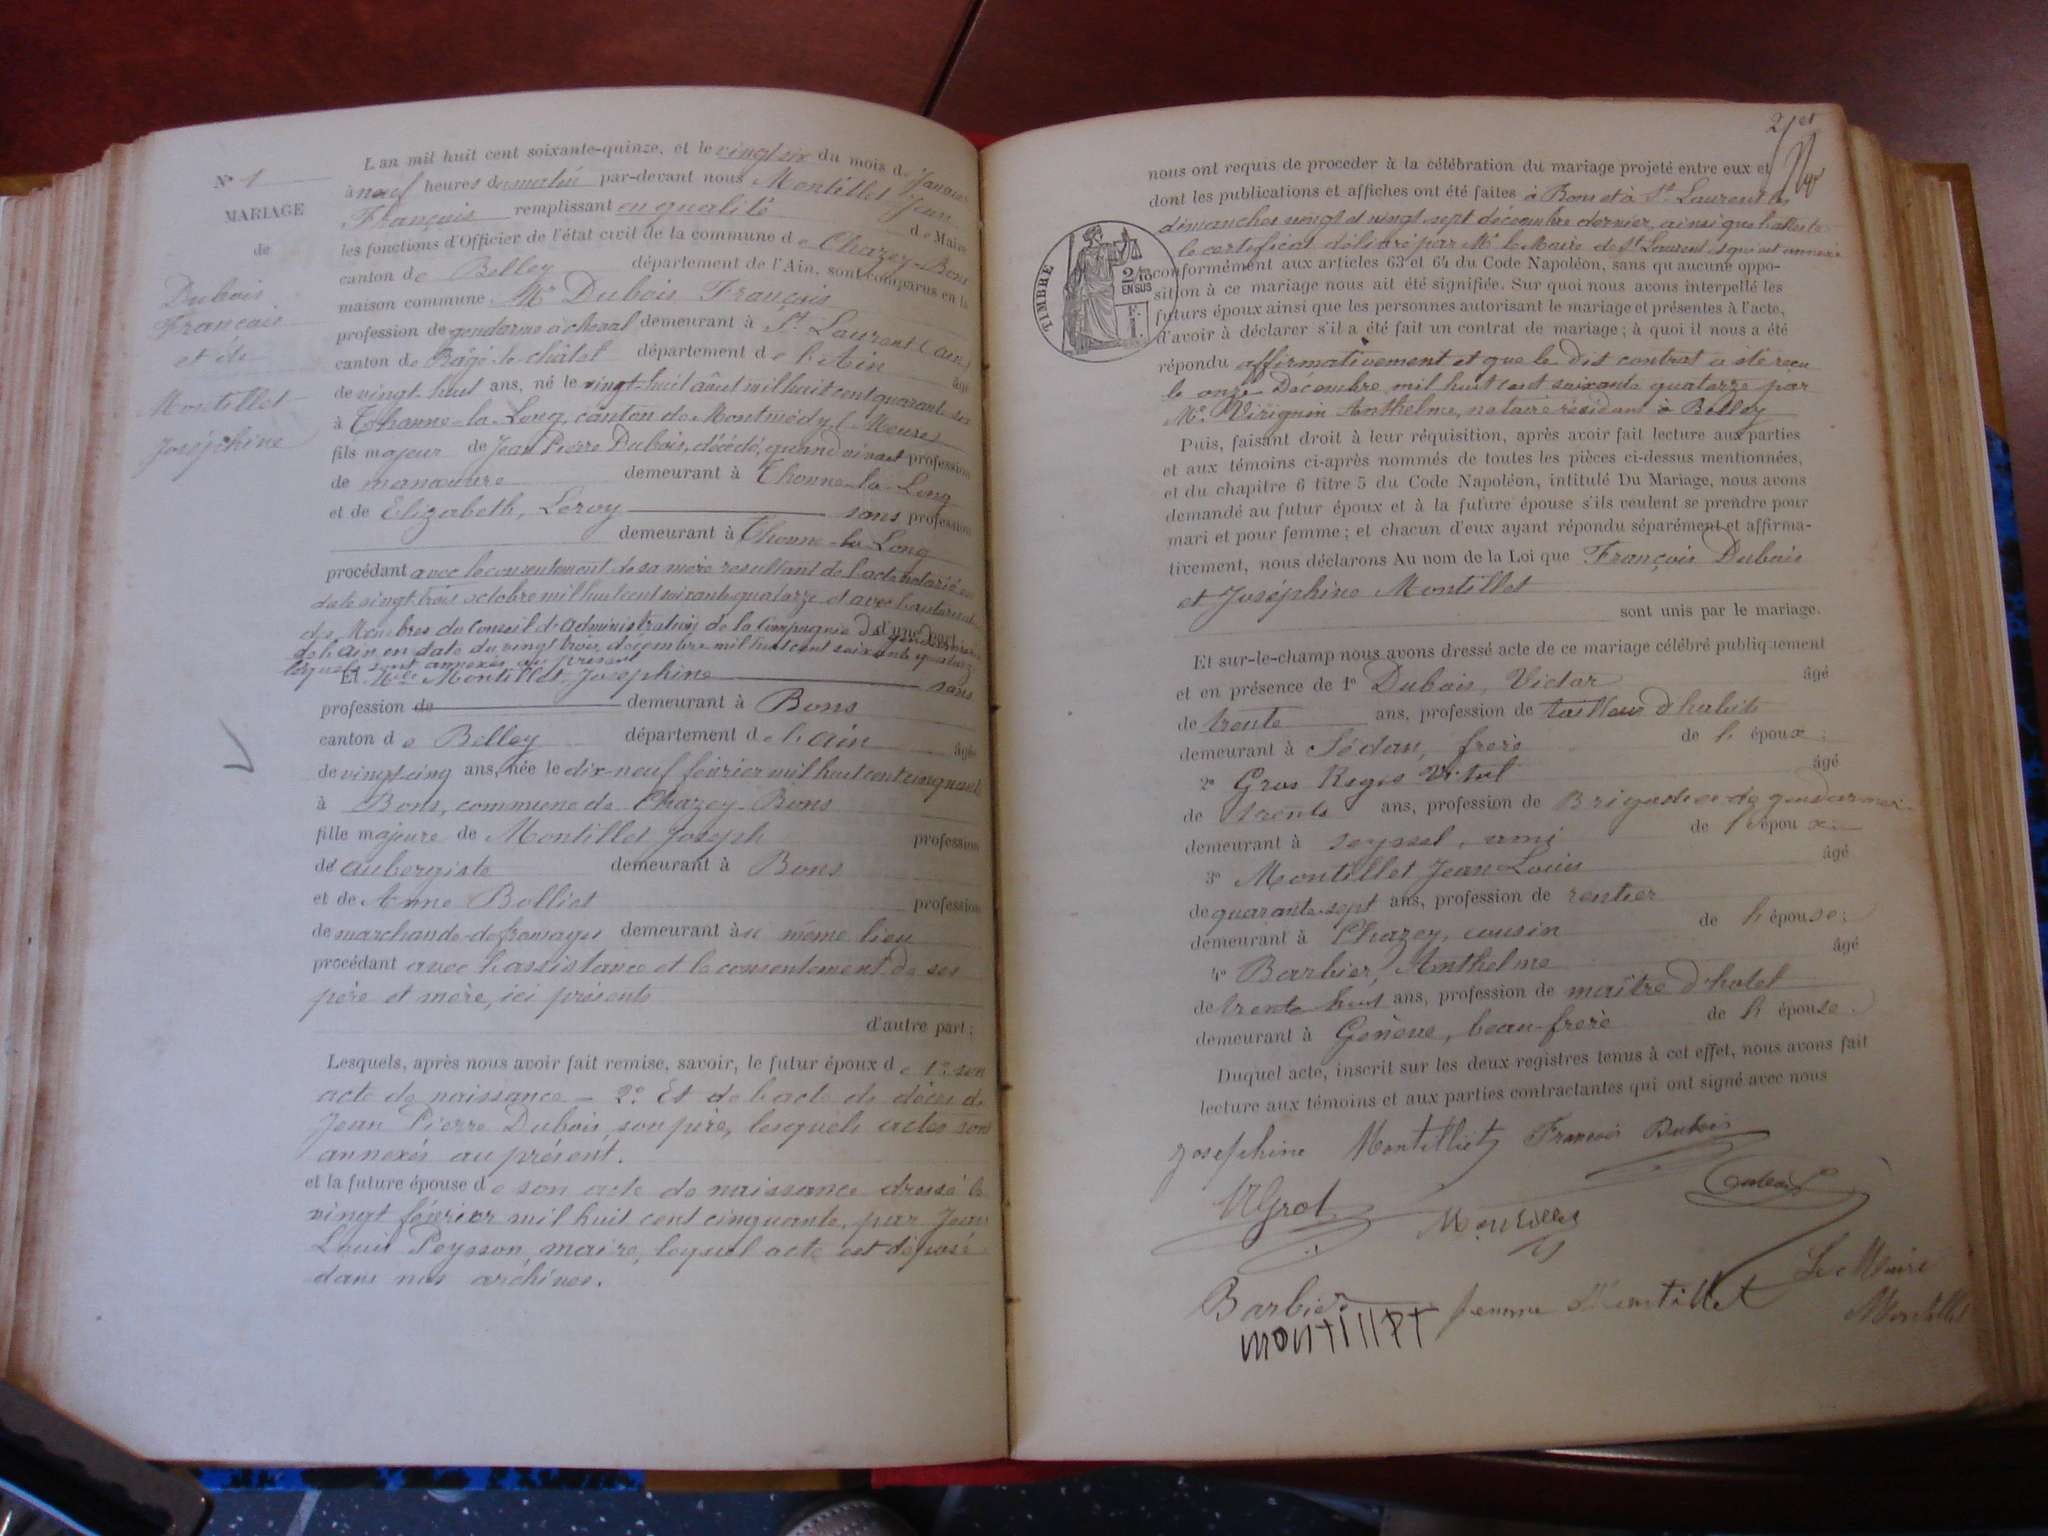 N° 1
MARIAGE
de
Dubois
François
et de
Montillet
Joséphine
L'an mil huit cent soixante-quinze, et le vingt six du mois de Janvier
à neuf heures du matin par-devant nous Montillet Jean
François remplissant en qualité de Maire
les fonctions d'Officier de l'état civil de la commune de Chazey-Bons
canton de Belley département de l'Ain, sont comparus en la
maison commune Mr Dubois François
profession de gendarme à cheval demeurant à St Laurent (ain)
canton de Bagé-le-châtel département de l'Ain âgé
de vingt huit ans, né le vingt-huit août mil huit cent quarante six
à Thonne-la-Long, canton de Montmédy (Meuse)
fils majeur de Jean Pierre Dubois, décédé, quand vivait profession
de manœuvre demeurant à Thonne-la-Long
et de Elizabeth, Leroy sans profession
demeurant à Thonne-la-Long
procédant avec le consentement de sa mère resultant de l'acte notarié en
date vingt trois octobre mil huit cent soixante quatorze et avec l'autorisation
des Membres du Conseil d'administration de la Compagnie de gendarmerie d'une part
de l'ain en date du vingt trois décembre mil huit cent soixante quatorze
lesquels sont annexés au présent
Et Mlle Montillet Joséphine sans
profession de demeurant à Bons
canton de Belley département de l'ain âgée
de vingt-cinq ans, née le dix-neuf février mil huit cent cinquante
à Bons, commune de Chazey-Bons
fille majeure de Montillet Joseph profession
de aubergiste demeurant à Bons
et de Anne Bolliet profession
de marchande de fromages demeurant au même lieu
procédant avec l'assistance et le consentement de ses
père et mère, ici présents
d'autre part;
Lesquels, après nous avoir fait remise, savoir, le futur époux de 1° son
acte de naissance - 2° Et de l'acte de décès de
Jean Pierre Dubois, son père, lesquels actes sont
annexés au présent.
et la future épouse de son acte de naissance dressé le
vingt février mil huit cent cinquante, par Jean
Louis Peysson, maire, lequel acte est déposé
dans nos archives.
2
nous ont requis de procéder à la célébration du mariage projeté entre eux et
dont les publications et affiches ont été faites à Bons et à St Laurent les
dimanches vingt et vingt sept décembre dernier, ainsi que l'atteste
le certificat délivré par Mr le Maire de St Laurent, et qui est annexé
TIMBRE
2/10
EN SUS
conformément aux articles 63 et 64 du Code Napoléon, sans qu'aucune oppo-
sition à ce mariage nous ait été signifiée. Sur quoi nous avons interpellé les
futurs époux ainsi que les personnes autorisant le mariage et présentes à l'acte,
d'avoir à déclarer s'il a été fait un contrat de mariage; à quoi il nous a été
répondu affirmativement et que le dit contrat a été reçu
le onze Décembre mil huit cent soixante quatorze par
Me Virignin Anthelme, notaire résidant à Belley
Puis, faisant droit à leur réquisition, après avoir fait lecture aux parties
et aux témoins ci-après nommés de toutes les pièces ci-dessus mentionnées,
et du chapitre 6 titre 5 du Code Napoléon, intitulé Du Mariage, nous avons
demandé au futur époux et à la future épouse s'ils veulent se prendre pour
mari et pour femme; et chacun d'eux ayant répondu séparément et affirma-
tivement, nous déclarons Au nom de la Loi que François Dubois
et Joséphine Montillet
sont unis par le mariage.
Et sur-le-champ nous avons dressé acte de ce mariage célébré publiquement
et en présence de 1° Dubois, Victor âgé
de trente ans, profession de tailleur d'habits
demeurant à Sédan, frère de l'époux;
2° Gros Regis Vital âgé
de trente ans, profession de Brigadier de gendarmerie
demeurant à Seyssel, ami de l'époux
3° Montillet Jean Louis âgé
de quarante-sept ans, profession de rentier
demeurant à Chazey, cousin de l'épouse;
4° Barbier, Anthelme âgé
de trente huit ans, profession de maître d'hotel
demeurant à Genève, beau-frère de l'épouse.
Duquel acte, inscrit sur les deux registres tenus à cet effet, nous avons fait
lecture aux témoins et aux parties contractantes qui ont signé avec nous
Josephine Montilliet François Dubois
VGrot Montillet Dubois
Barbier femme Montillet Le Maire
montillet Montillet